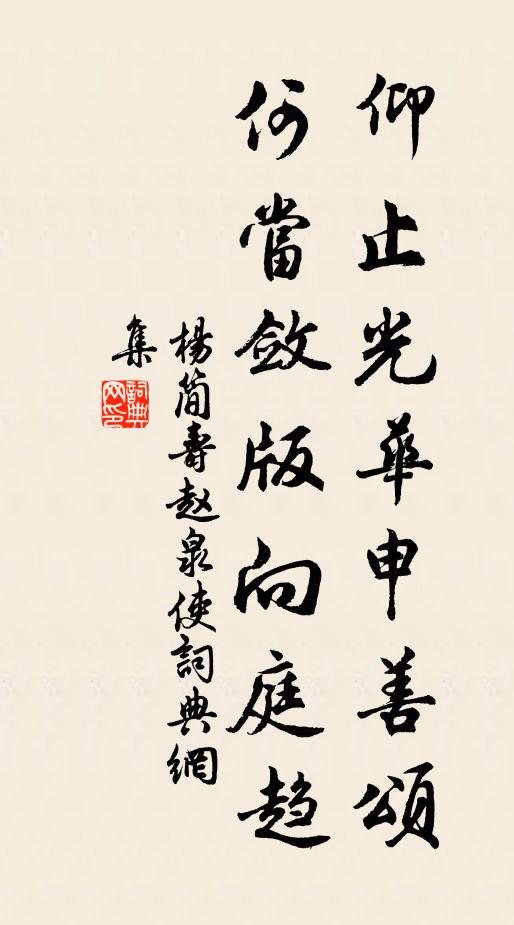 仰止光華申善頌
何當斂版向庭趋
楊简壽赵泉使詞典網
集
詞典网印